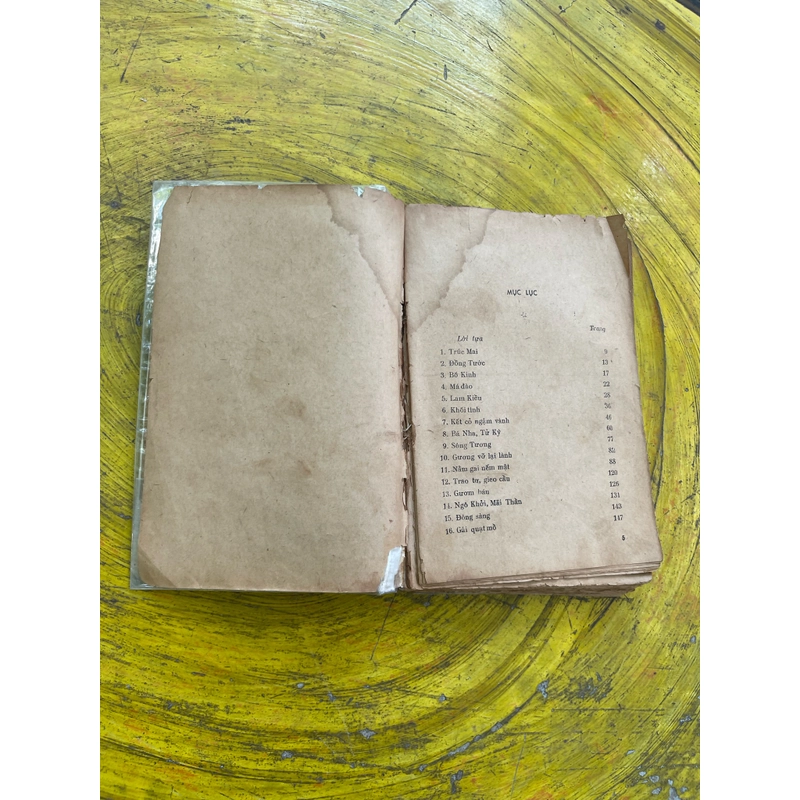 MỤC LỤC
Trang
Lời tựa
1. Trúc Mai 9
2. Đồng Tước 13
3. Bố Kinh 17
4. Má đào 22
5. Lam Kiều 28
6. Khối tình
7. Kết cỏ ngậm vành 46
8. Bá Nha, Tử Kỳ 66
9. Sông Tương 77
10. Gương vỡ lại lành 82
11. Nằm gai nếm mật 88
12. Trao tơ, gieo cầu 120
13. Gươm báu 126
14. Ngô Khởi, Mãi Thần 131
15. Đông sàng 143
16. Gái quạt mồ 147
5